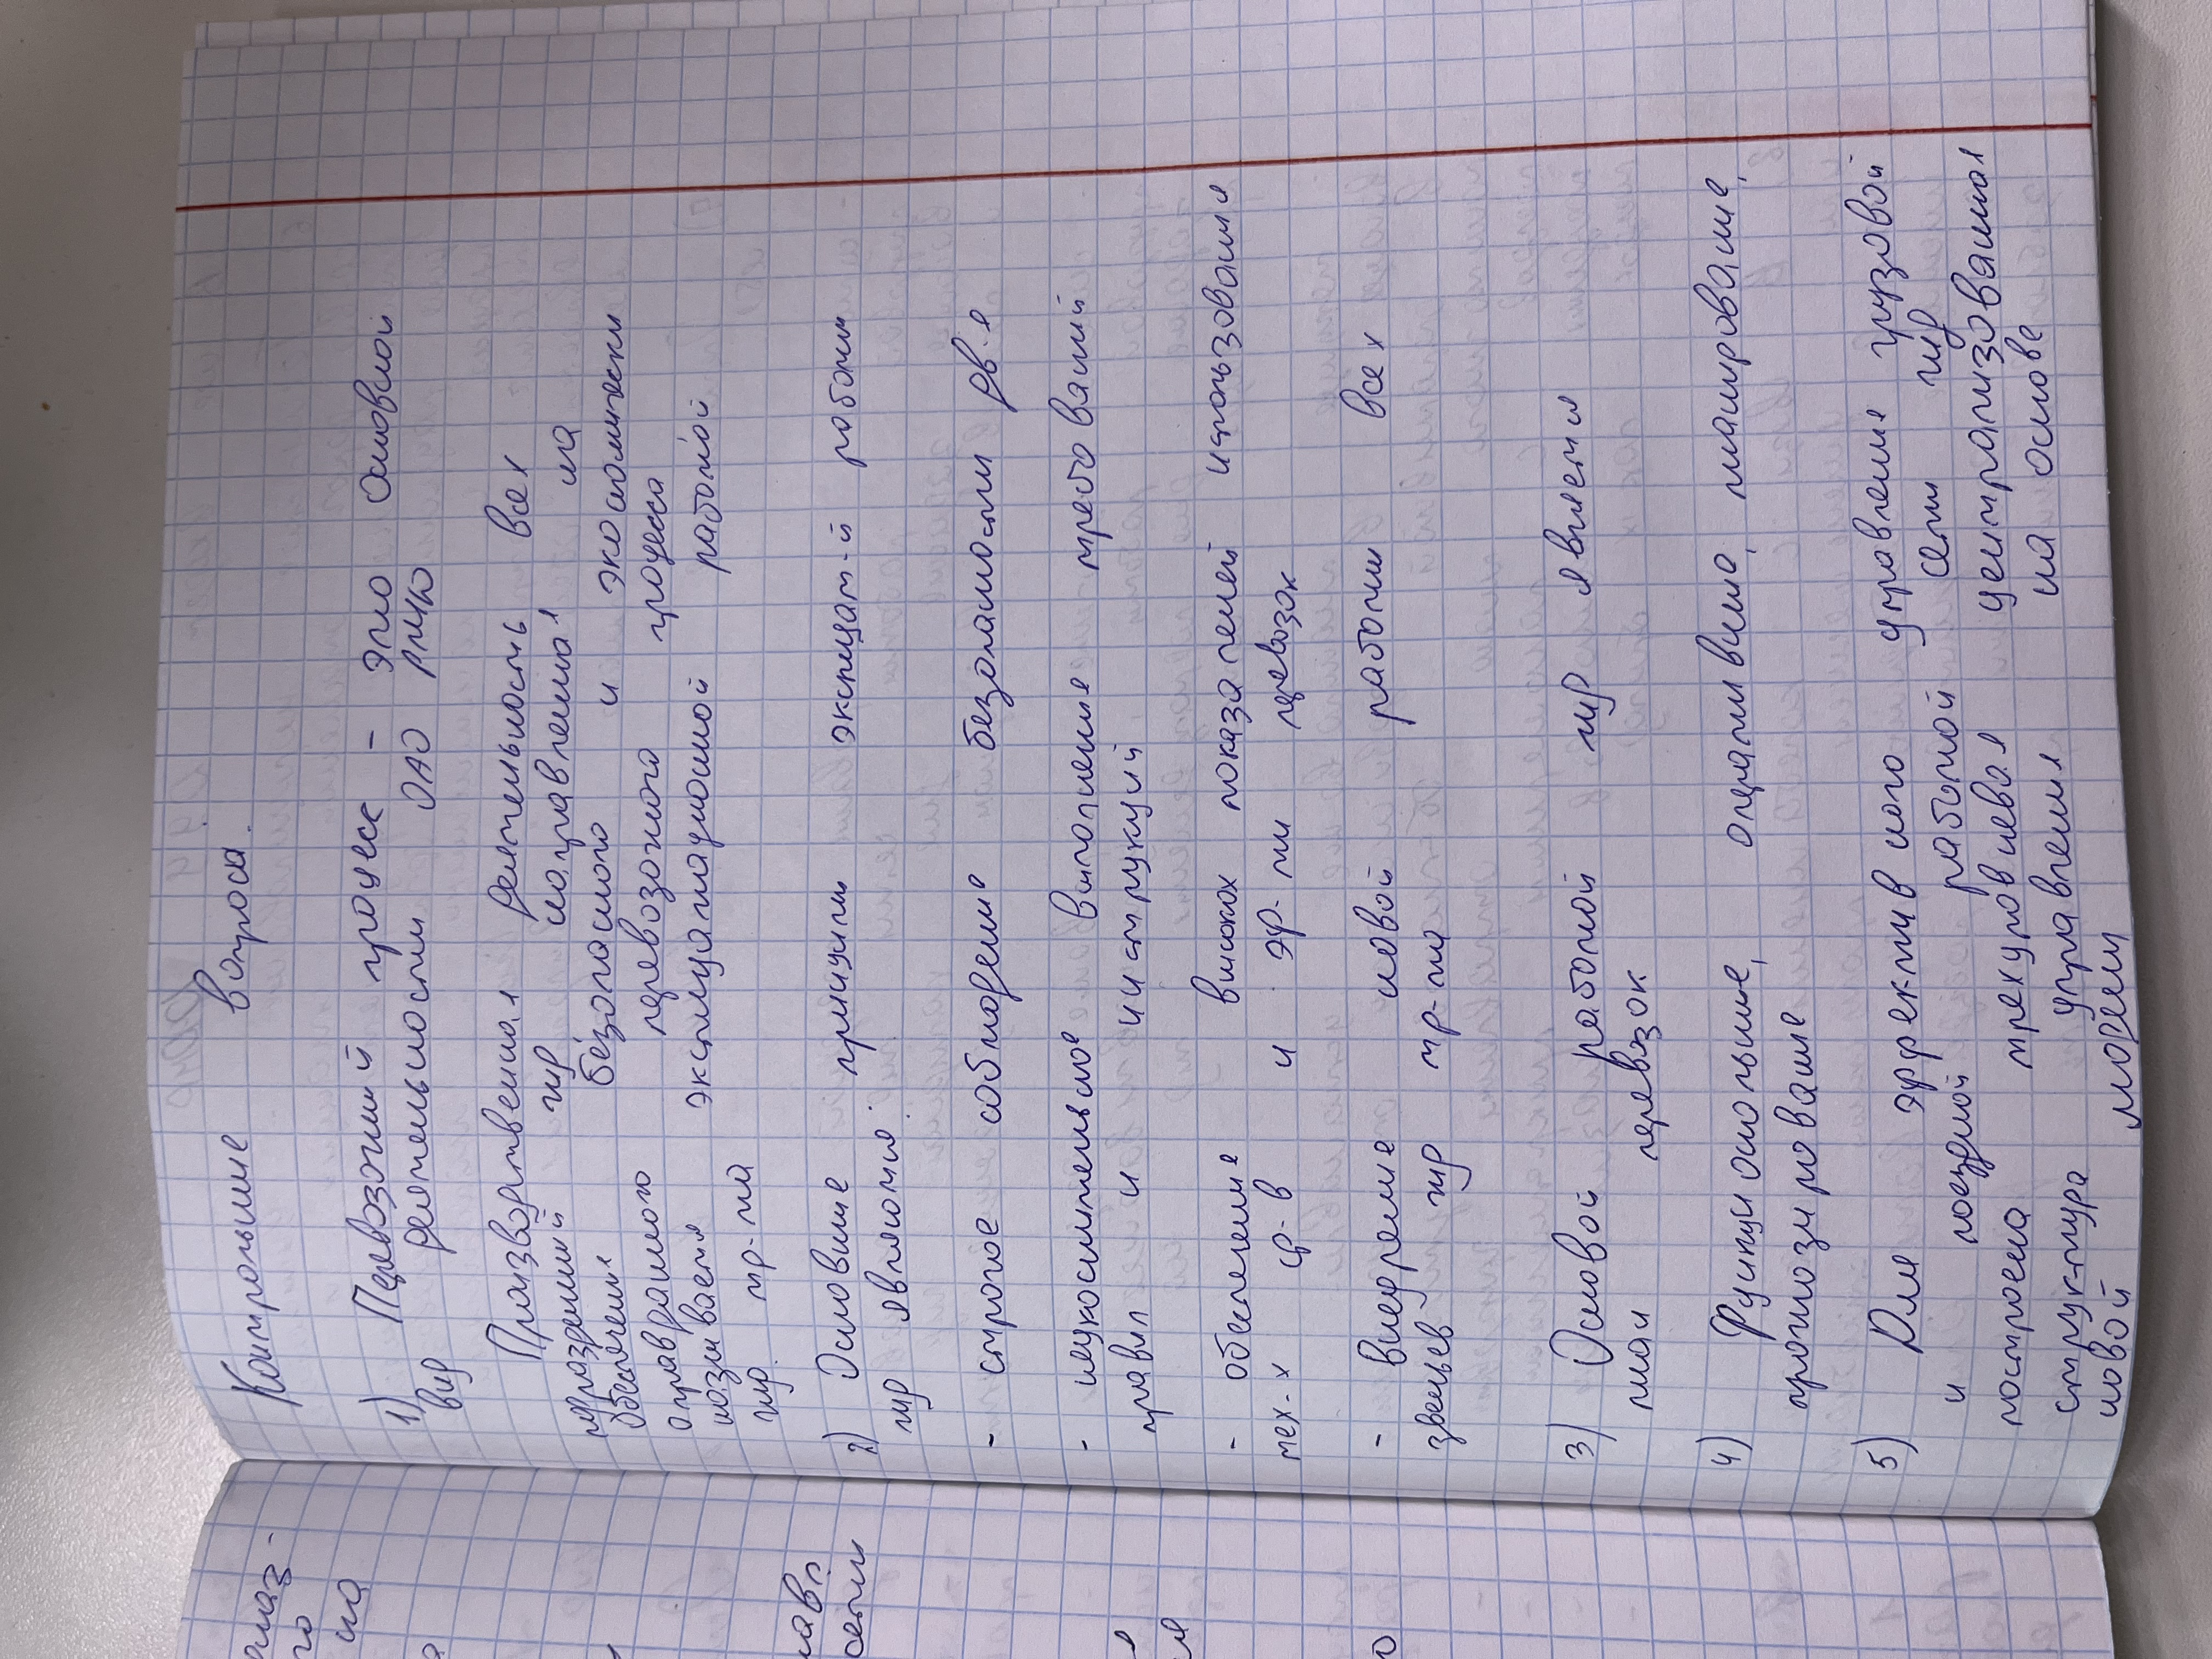 Контрольные вопроса.
1) Перевозочный процесс - это основной
вид деятельности ОАО РЖД
Производственная деятельность всех
подразделений ЖД направлена на
обеспечение безопасного и экономически
оправданного перевозочного процесса
называется эксплуатационной работой
ЖД тр-та
2) Основные принципы эксплуат-й работы
ЖД являются:
- строгое соблюдение безопасности дв.я
- неукоснительное выполнение требований
правил и инструкций
- обеспечение высоких показателей использования
тех-х ср-в и эф-ти перевозок
- внедрение новой работы всех
звеньев ЖД тр-та
3) Основой работой ЖД является
план перевозок
4) Функциональные, оперативно, планирование,
прогнозирование
5) Для эффективного управления грузовой
и поездной работой сети ЖД
построена трехуровневая централизованная
структура управления на основе
новой модели
на